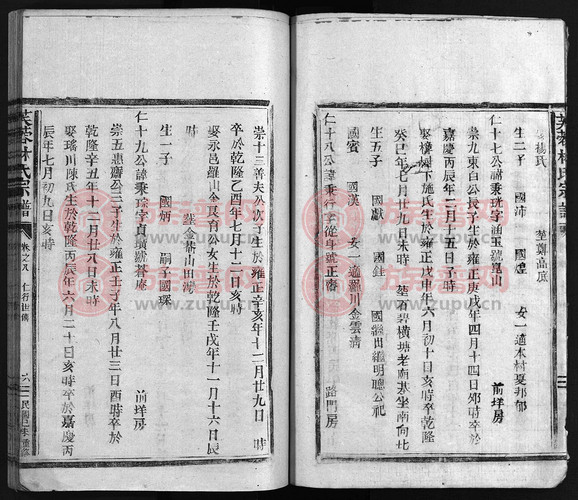 芙蓉林氏宗譜
娶楊氏
生二子 國沛 國煌 女一適本村夏邦郁
仁十七公諱秉珖字涵玉號崑山 前垟房
崇九東白公長子生於康熙庚子年四月十四日卯時卒於
嘉慶丙辰年二月十五日子時
娶 樓下施氏生於雍正戊申年六月初十日亥時卒乾隆
癸巳年七月廿九日未時 墓右碧橫塘老廟基坐南向北
生五子 國獻 國鈺 國繼出繼明聰公祀
國漢 女一適羅川金雲清
國賓
仁十八公諱秉行字從身號正齋 路門房
崇十三善夫公次子生於雍正辛亥年十二月廿九日 時
卒於乾隆乙酉年七月十二日亥時
娶永邑羅山余長育公女生於乾隆壬戌年十一月十六日辰
時
生一子 國炳 嗣子國琛
仁十九公諱秉琮字貞璜號晉庵 前垟房
崇五惠齋公三子生於雍正壬子年八月廿三日酉時卒於
乾隆辛丑年十二月廿八日未時
娶瑤川陳氏生於乾隆丙辰年六月二十日亥時卒於嘉慶丙
辰年七月初九日亥時
芙蓉林氏宗譜
卷之八 仁行世傳
族譜網
www.zupu.cn